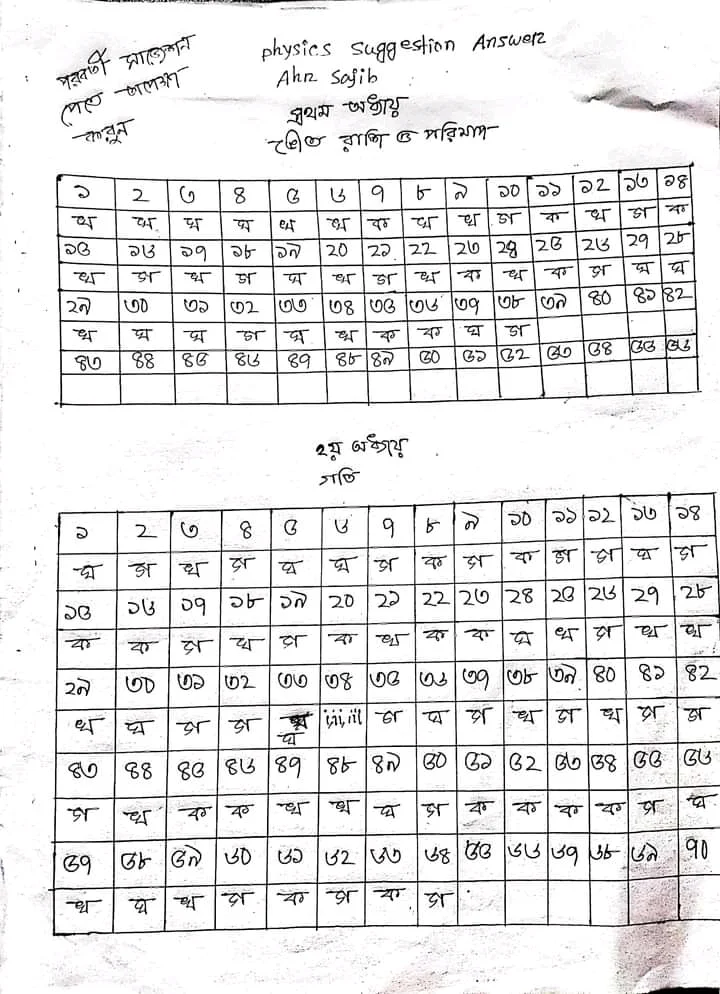 পরবর্তী সাজেশন
পেতে অপেক্ষা
করুন
physics suggestion Answer
Ahr Sajib
প্রথম অধ্যায়
ভৌত রাশি ও পরিমাপ
১ ২ ৩ ৪ ৫ ৬ ৭ ৮ ৯ ১০ ১১ ১২ ১৩ ১৪
খ ঘ ঘ ঘ খ খ ক ঘ খ গ ক খ গ ক
১৫ ১৬ ১৭ ১৮ ১৯ ২০ ২১ ২২ ২৩ ২৪ ২৫ ২৬ ২৭ ২৮
খ গ খ গ ঘ খ গ খ ক খ ক গ ঘ ঘ
২৯ ৩০ ৩১ ৩২ ৩৩ ৩৪ ৩৫ ৩৬ ৩৭ ৩৮ ৩৯ ৪০ ৪১ ৪২
খ ঘ ঘ গ ঘ খ ক ক ঘ গ
৪৩ ৪৪ ৪৫ ৪৬ ৪৭ ৪৮ ৪৯ ৫০ ৫১ ৫২ ৫৩ ৫৪ ৫৫ ৫৬
২য় অধ্যায়
গতি
১ ২ ৩ ৪ ৫ ৬ ৭ ৮ ৯ ১০ ১১ ১২ ১৩ ১৪
ঘ গ খ গ ঘ ঘ গ ক গ ক গ গ ঘ গ
১৫ ১৬ ১৭ ১৮ ১৯ ২০ ২১ ২২ ২৩ ২৪ ২৫ ২৬ ২৭ ২৮
ক ক গ খ গ ক খ ক ক ঘ খ গ খ খ
২৯ ৩০ ৩১ ৩২ ৩৩ ৩৪ ৩৫ ৩৬ ৩৭ ৩৮ ৩৯ ৪০ ৪১ ৪২
খ ঘ গ গ ঘ i,ii,iii গ ঘ গ খ গ খ গ গ
৪৩ ৪৪ ৪৫ ৪৬ ৪৭ ৪৮ ৪৯ ৫০ ৫১ ৫২ ৫৩ ৫৪ ৫৫ ৫৬
গ খ ক ক খ খ ঘ গ ক ক ক ক গ ঘ
৫৭ ৫৮ ৫৯ ৬০ ৬১ ৬২ ৬৩ ৬৪ ৬৫ ৬৬ ৬৭ ৬৮ ৬৯ ৭০
খ ঘ খ গ ক গ ক গ